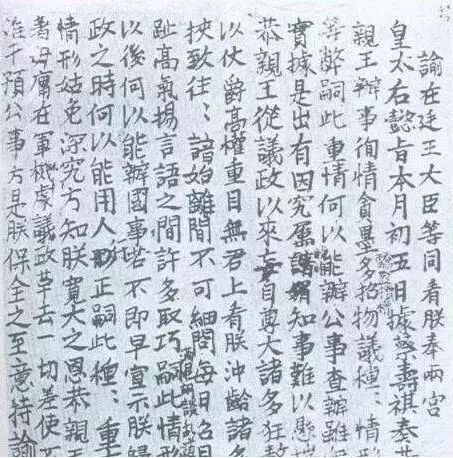 諭在廷王大臣等同看朕奉兩宮
皇太后懿旨本月初五日據蔡壽祺奏恭
親王辦事徇情貪墨多招物議種:情形
等弊嗣此重情何以能辦公事查辦雖
實據是出有因究屬知事難以懸
恭親王從議政以來妄自尊大諸多狂敖
以仗爵高權重目無君上看朕沖齡諸
挾致往:諳始離間不可細問每日召見
趾高氣揚言語之間許多取巧滿口胡談亂道嗣此情形
以後何以能辦國事若不即早宣示朕歸
政之時何以能用人行正嗣此種:重
情形姑免深究方知朕寬大之恩恭親王
著毋庸在軍機處議政革去一切差使不
准干預公事方是朕保全之至意特諭